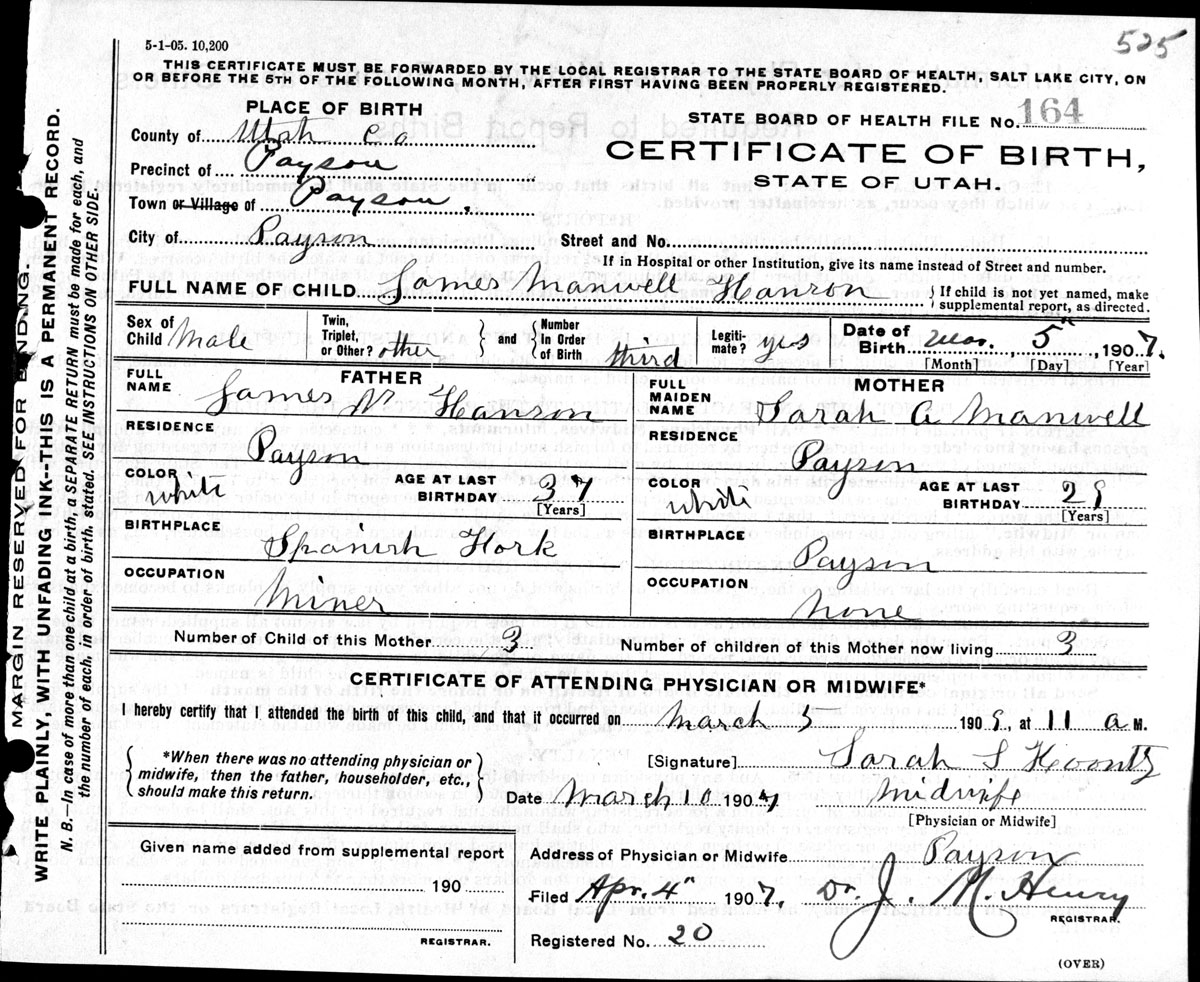 525
5-1-05. 10,200
THIS CERTIFICATE MUST BE FORWARDED BY THE LOCAL REGISTRAR TO THE STATE BOARD OF HEALTH, SALT LAKE CITY, ON
OR BEFORE THE 5TH OF THE FOLLOWING MONTH, AFTER FIRST HAVING BEEN PROPERLY REGISTERED.
MARGIN RESERVED FOR BINDING.
WRITE PLAINLY, WITH UNFADING INK--THIS IS A PERMANENT RECORD.
N. B.—In case of more than one child at a birth, a SEPARATE RETURN must be made for each, and
the number of each, in order of birth, stated. SEE INSTRUCTIONS ON OTHER SIDE
PLACE OF BIRTH
County of Utah Co
Precinct of Payson
Town or Village of Payson,
City of Payson
STATE BOARD OF HEALTH FILE No. 164
CERTIFICATE OF BIRTH,
STATE OF UTAH.
Street and No.
If in Hospital or other Institution, give its name instead of Street and number.
FULL NAME OF CHILD James Manwell Hanson { If child is not yet named, make
supplemental report, as directed.
Sex of Child Male
Twin, Triplet, or Other? other } and { Number In Order of Birth third
Legitimate? yes
Date of Birth Mar., 5", 1907.
[Month] [Day] [Year]
FATHER
FULL NAME James N Hanson
RESIDENCE Payson
COLOR white AGE AT LAST BIRTHDAY 37
[Years]
BIRTHPLACE Spanish Fork
OCCUPATION Miner
MOTHER
FULL MAIDEN NAME Sarah A Manwell
RESIDENCE Payson
COLOR white AGE AT LAST BIRTHDAY
[Years]
BIRTHPLACE Payson
OCCUPATION none
Number of Child of this Mother 3 Number of children of this Mother now living 3
CERTIFICATE OF ATTENDING PHYSICIAN OR MIDWIFE*
I hereby certify that I attended the birth of this child, and that it occurred on March 5 190 , at 11 a M.
{ *When there was no attending physician or
midwife, then the father, householder, etc.,
should make this return. }
[Signature] Sarah S Koontz
Date March 10 1907 Midwife
[Physician or Midwife]
Given name added from supplemental report
190
REGISTRAR.
Address of Physician or Midwife Payson
Filed Apr. 4" 1907. Dr. J. M. Henry
REGISTRAR.
Registered No. 20
(OVER)